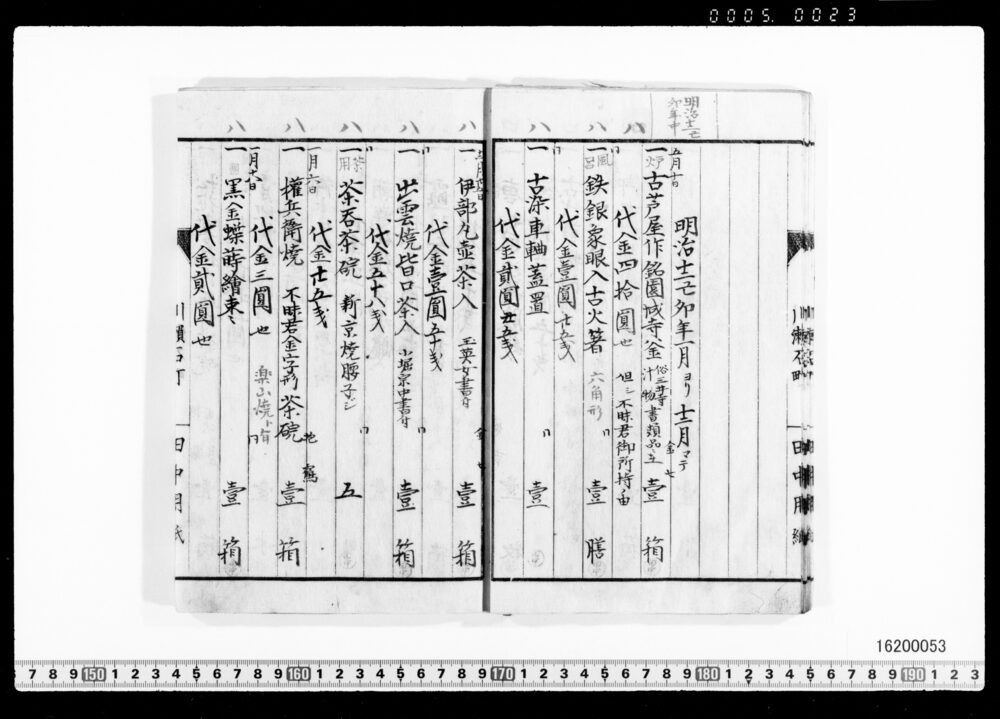 0005. 0023
明治十二己
卯年中
明治十二己卯年一月ヨリ十二月マテ
五月十日
一 古芦屋作銘園城寺釜 壹箱
代金四拾圓也 但シ不昧君御所持
一 鉄銀象眼入古火箸 六角形 壹膳
代金壹圓廿五戔
一 古染車軸蓋置 壹
代金貳圓廿五戔
一 伊部丸壷茶入 壹箱
代金壹圓五十戔
一 出雲焼皆口茶入 小堀宗中書付 壹箱
代金五十八戔
一 茶呑茶碗 新京焼腰 五
代金廿五戔
一月六日
一 權兵衛焼 不昧君金字形茶碗 壹箱
代金三圓也 楽山焼ト有
一月十八日
一 黒金蝶蒔繪棗 壹箱
代金貳圓也
田中用紙
16200053
7 8 9 150 1 2 3 4 5 6 7 8 9 160 1 2 3 4 5 6 7 8 9 170 1 2 3 4 5 6 7 8 9 180 1 2 3 4 5 6 7 8 9 190 1 2 3